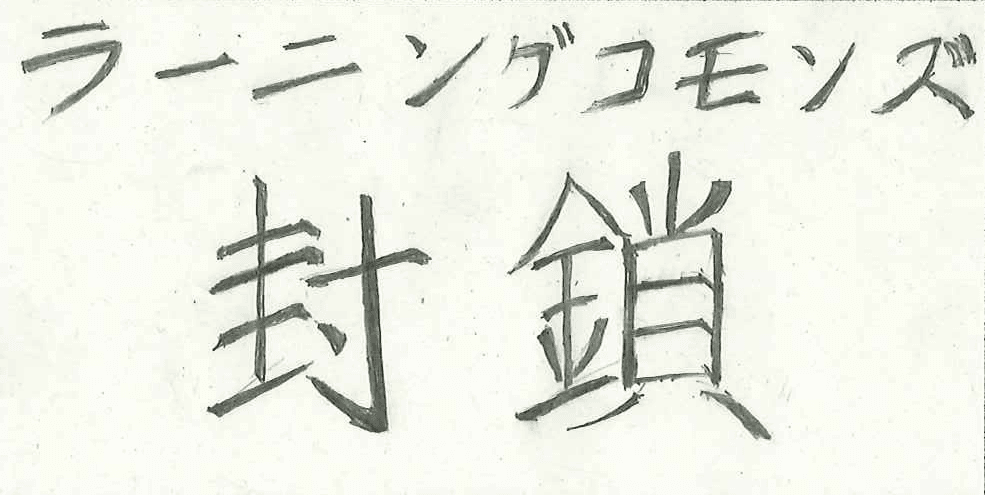 ラーニングコモンズ
封鎖